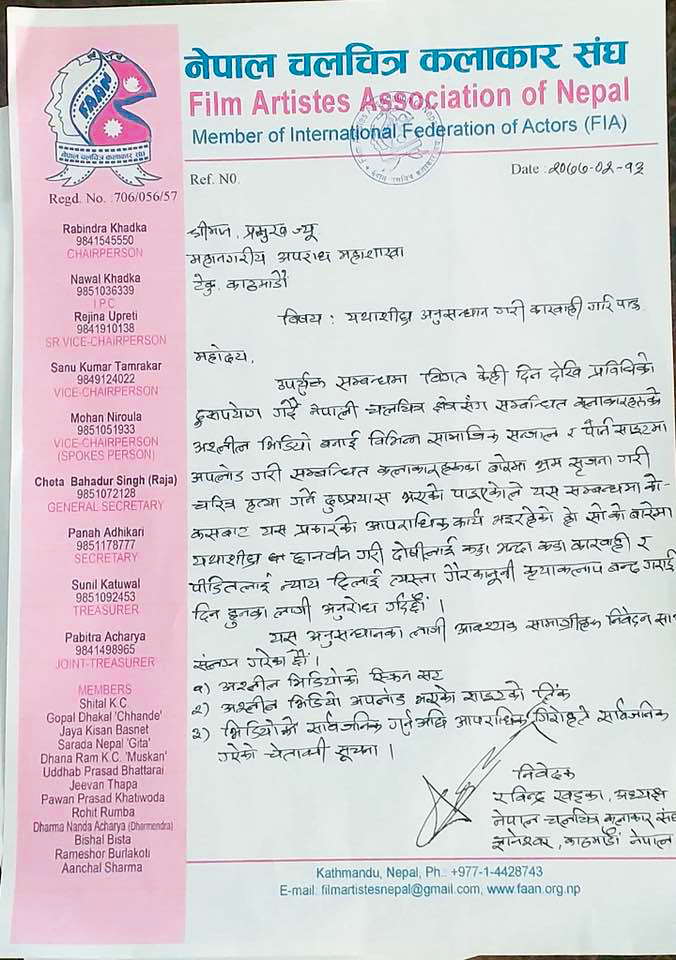 नेपाल चलचित्र कलाकार संघ
Film Artistes Association of Nepal
Member of International Federation of Actors (FIA)
FAAN
नेपाल चलचित्र कलाकार संघ
Regd. No. :706/056/57
Ref. N0.
Date :२०७७-०२-१३
Rabindra Khadka
9841545550
CHAIRPERSON
Nawal Khadka
9851036339
I.P.C
Rejina Upreti
9841910138
SR.VICE-CHAIRPERSON
Sanu Kumar Tamrakar
9849124022
VICE-CHAIRPERSON
Mohan Niroula
9851051933
VICE-CHAIRPERSON
(SPOKES PERSON)
Chota Bahadur Singh (Raja)
9851072128
GENERAL SECRETARY
Panah Adhikari
9851178777
SECRETARY
Sunil Katuwal
9851092453
TREASURER
Pabitra Acharya
9841498965
JOINT-TREASURER
MEMBERS
Shital K.C.
Gopal Dhakal 'Chhande'
Jaya Kisan Basnet
Sarada Nepal 'Gita'
Dhana Ram K.C. 'Muskan'
Uddhab Prasad Bhattarai
Jeevan Thapa
Pawan Prasad Khatiwoda
Rohit Rumba
Dharma Nanda Acharya (Dharmendra)
Bishal Bista
Rameshor Burlakoti
Aanchal Sharma
श्रीमान, प्रमुख ज्यू
महानगरीय अपराध महाशाखा
टेकु, काठमाडौं
विषय : यथाशीघ्र अनुसन्धान गरी कारवाही गरि पाउ
महोदय,
उपर्युक्त सम्बन्धमा विगत केही दिन देखि प्रविधिको
दुरुपयोग गर्दै नेपाली चलचित्र क्षेत्रसंग सम्बन्धित कलाकारहरुको
अश्लील भिडियो बनाई विभिन्न सामाजिक सन्जाल र पोर्न साइटमा
अपलोड गरी सम्बन्धित कलाकारहरुका बारेमा भ्रम सृजना गरी
चरित्र हत्या गर्ने दुष्प्रयास भएको पाइएकोले यस सम्बन्धमा को-
कसबाट यस प्रकारको आपराधिक कार्य भइरहेको हो सो को बारेमा
यथाशीघ्र छानवीन गरी दोषीलाई कडा भन्दा कडा कारवाही र
पीडितलाई न्याय दिलाई त्यस्ता गैरकानूनी कृयाकलाप बन्द गराई
दिन हुनका लागी अनुरोध गर्दछौं ।
यस अनुसन्धानका लागी आवश्यक सामाग्रीहरु निवेदन
संलग्न गरेका छौं ।
१) अश्लील भिडियोको स्क्रिन सट
२) अश्लील भिडियो अपलोड भएको साइटको लिंक
३) भिडियोको सार्वजनिक गर्नु अघि आपराधिक गिरोहले सार्वजनिक
गरेको चेतावनी सूचना ।
निवेदक
रविन्द्र खड्का, अध्यक्ष
नेपाल चलचित्र कलाकार संघ
ज्ञानेश्वर, काठमाडौं नेपाल
Kathmandu, Nepal, Ph.: +977-1-4428743
E-mail: filmartistesnepal@gmail.com, www.faan.org.np